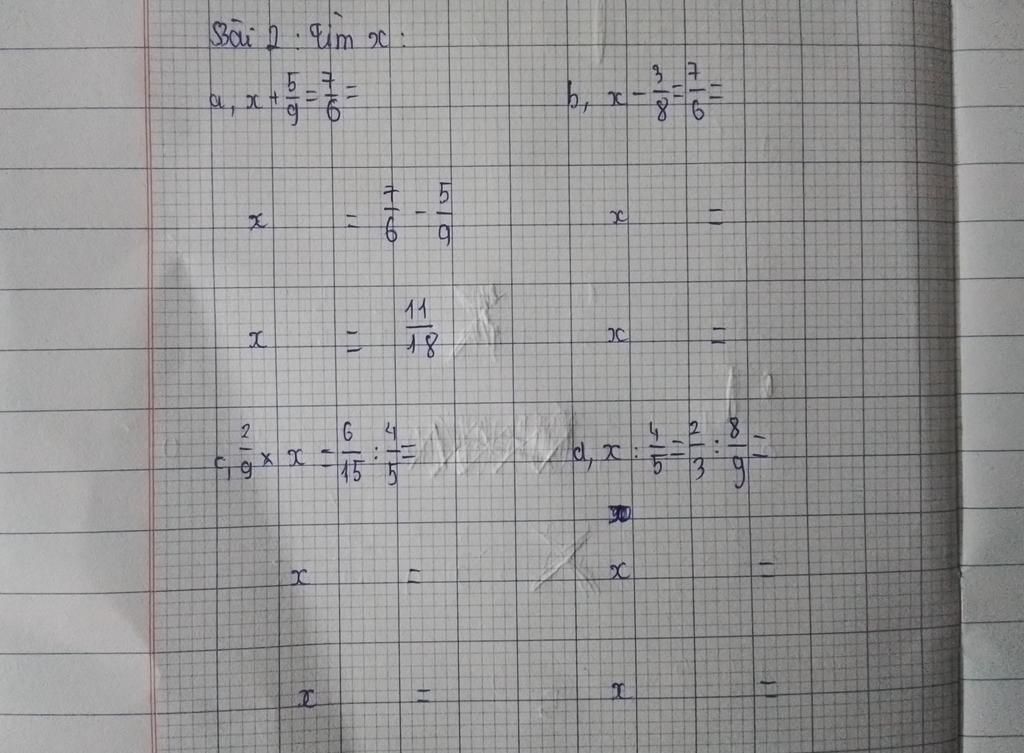 Bài 2 : Tìm x :
a, x + 5/9 = 7/6 =
b, x - 3/8 = 7/6 =
x = 7/6 - 5/9
x =
x = 11/18
x =
c, 2/9 × x = 6/15 : 4/5 =
d, x : 4/5 = 2/3 : 8/9 =
x =
x =
x =
x =